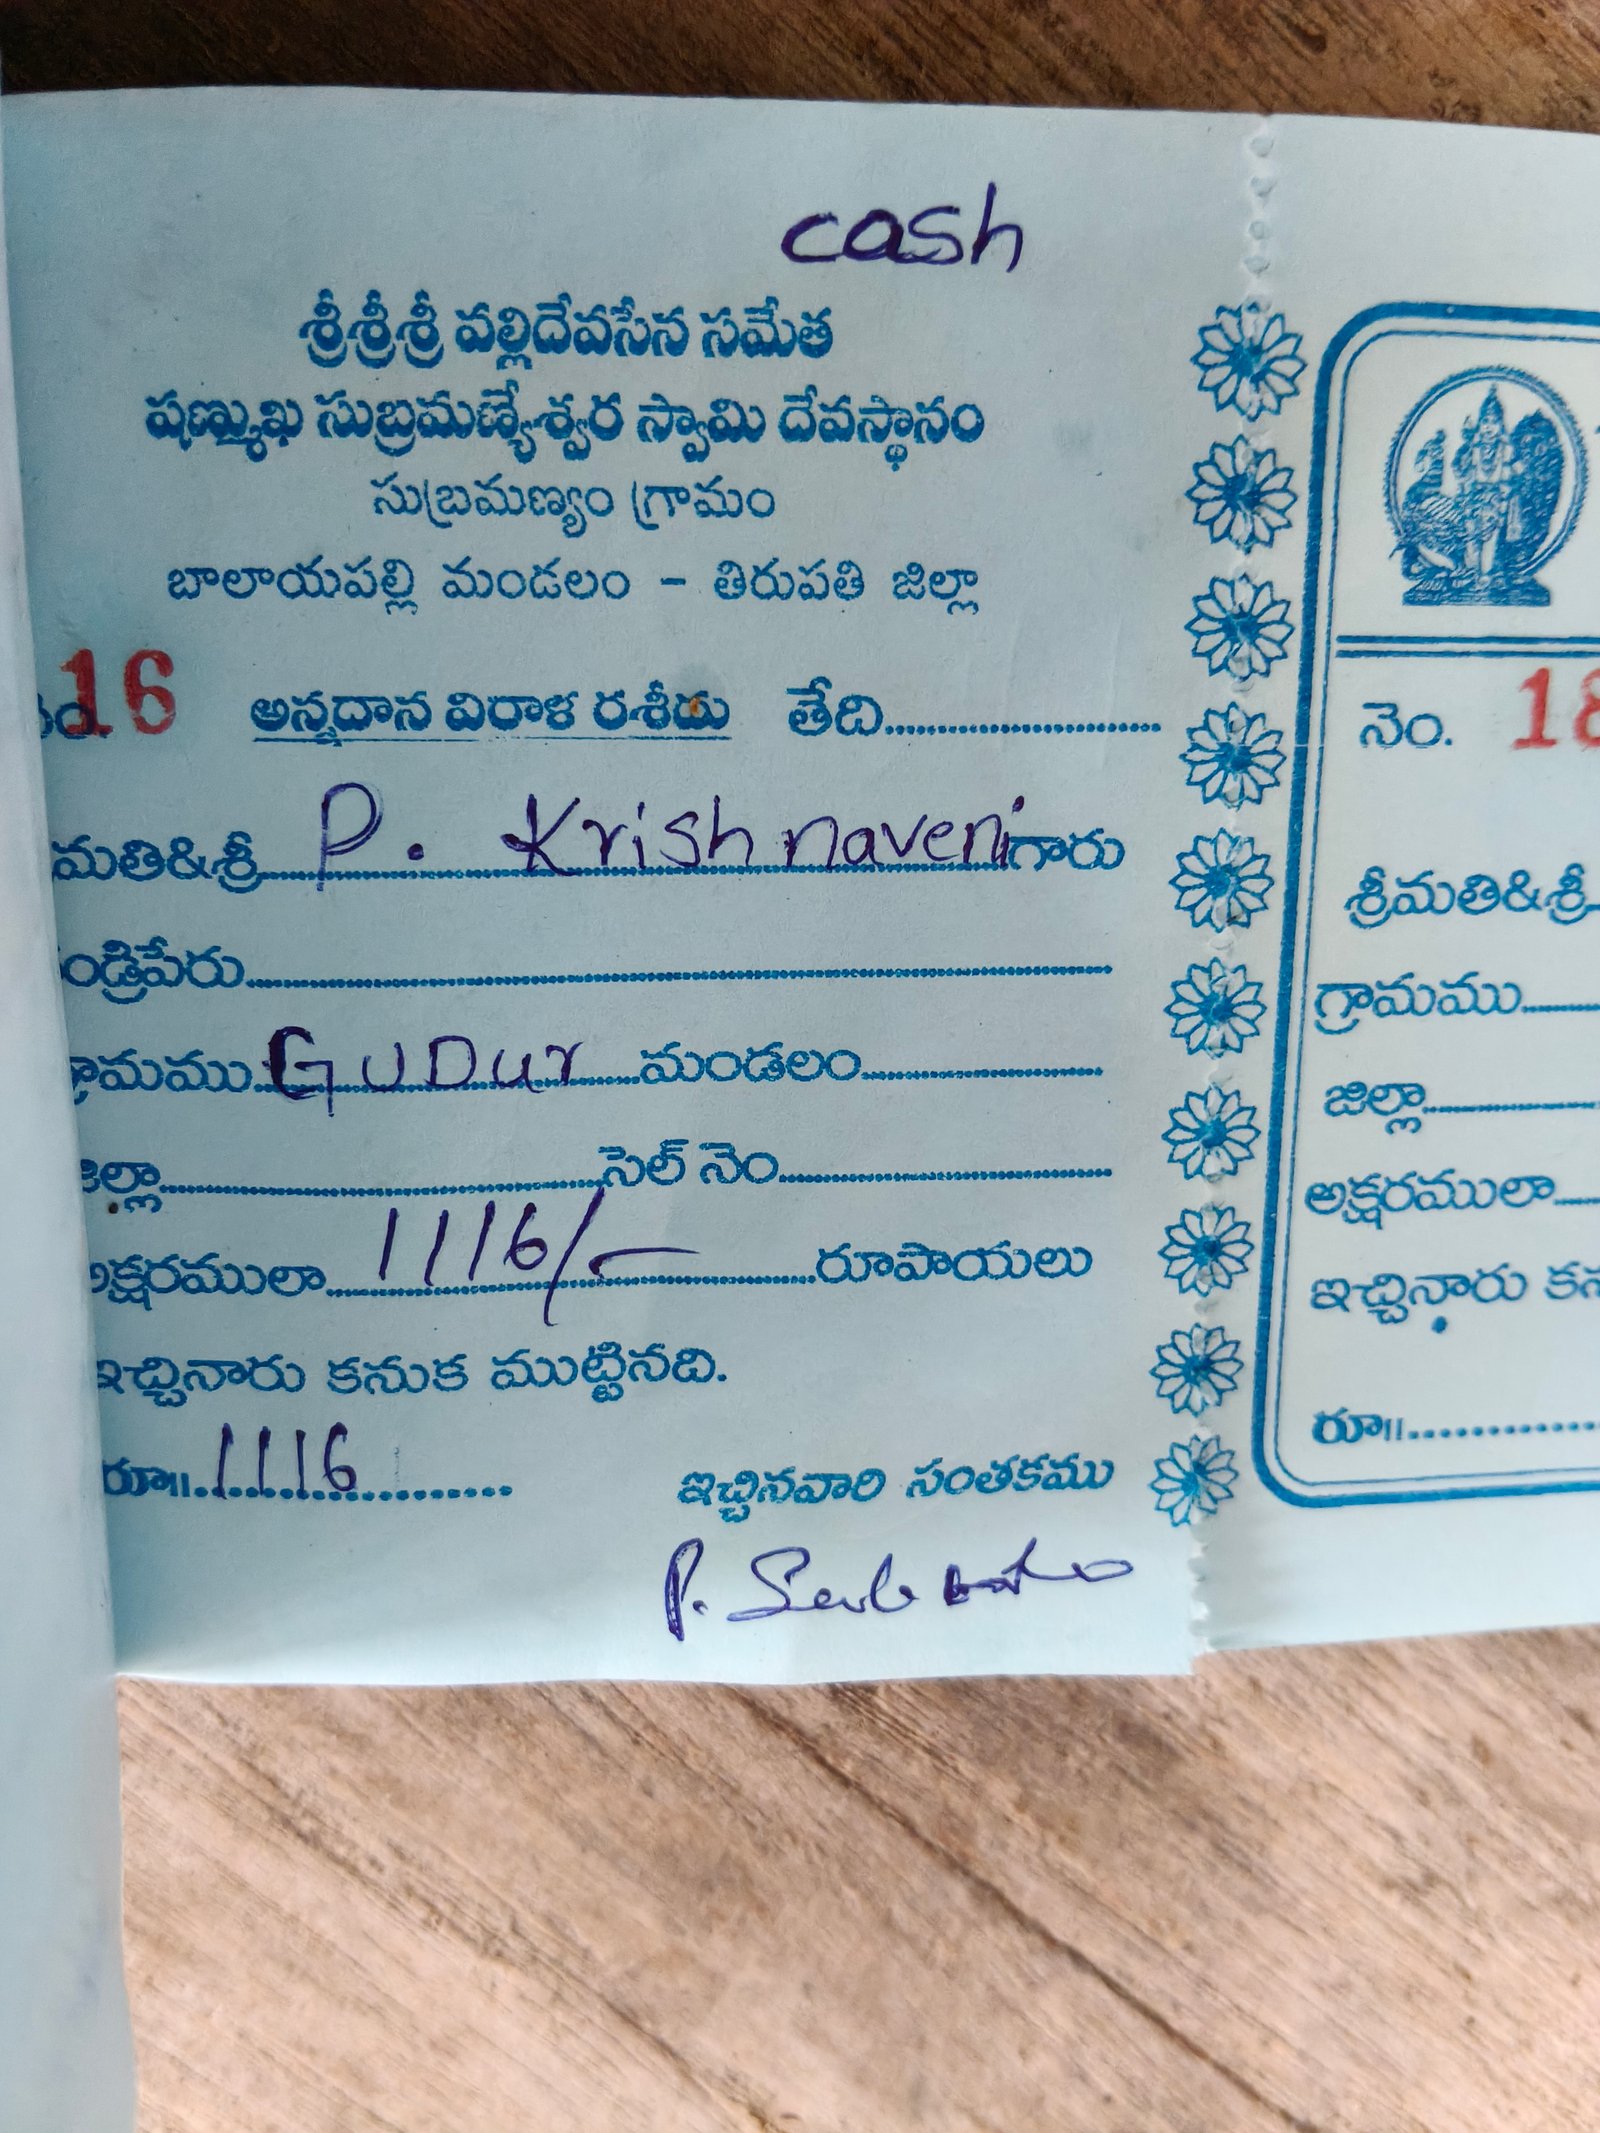 cash
శ్రీశ్రీశ్రీ వల్లిదేవసేన సమేత
షణ్ముఖ సుబ్రమణ్యేశ్వర స్వామి దేవస్థానం
సుబ్రమణ్యం గ్రామం
బాలాయపల్లి మండలం - తిరుపతి జిల్లా
16 అన్నదాన విరాళ రశీదు తేది
మతి&శ్రీ P. Krishnaveni గారు
ండ్రిపేరు
గ్రామము GUDur మండలం
జిల్లా సెల్ నెం.
అక్షరములా 1116/- రూపాయలు
ఇచ్చినారు కనుక ముట్టినది.
రూ॥ 1116 ఇచ్చినవారి సంతకము
P.
నెం. 18
శ్రీమతి&శ్రీ
గ్రామము
జిల్లా
అక్షరములా
ఇచ్చినారు కన
రూ॥